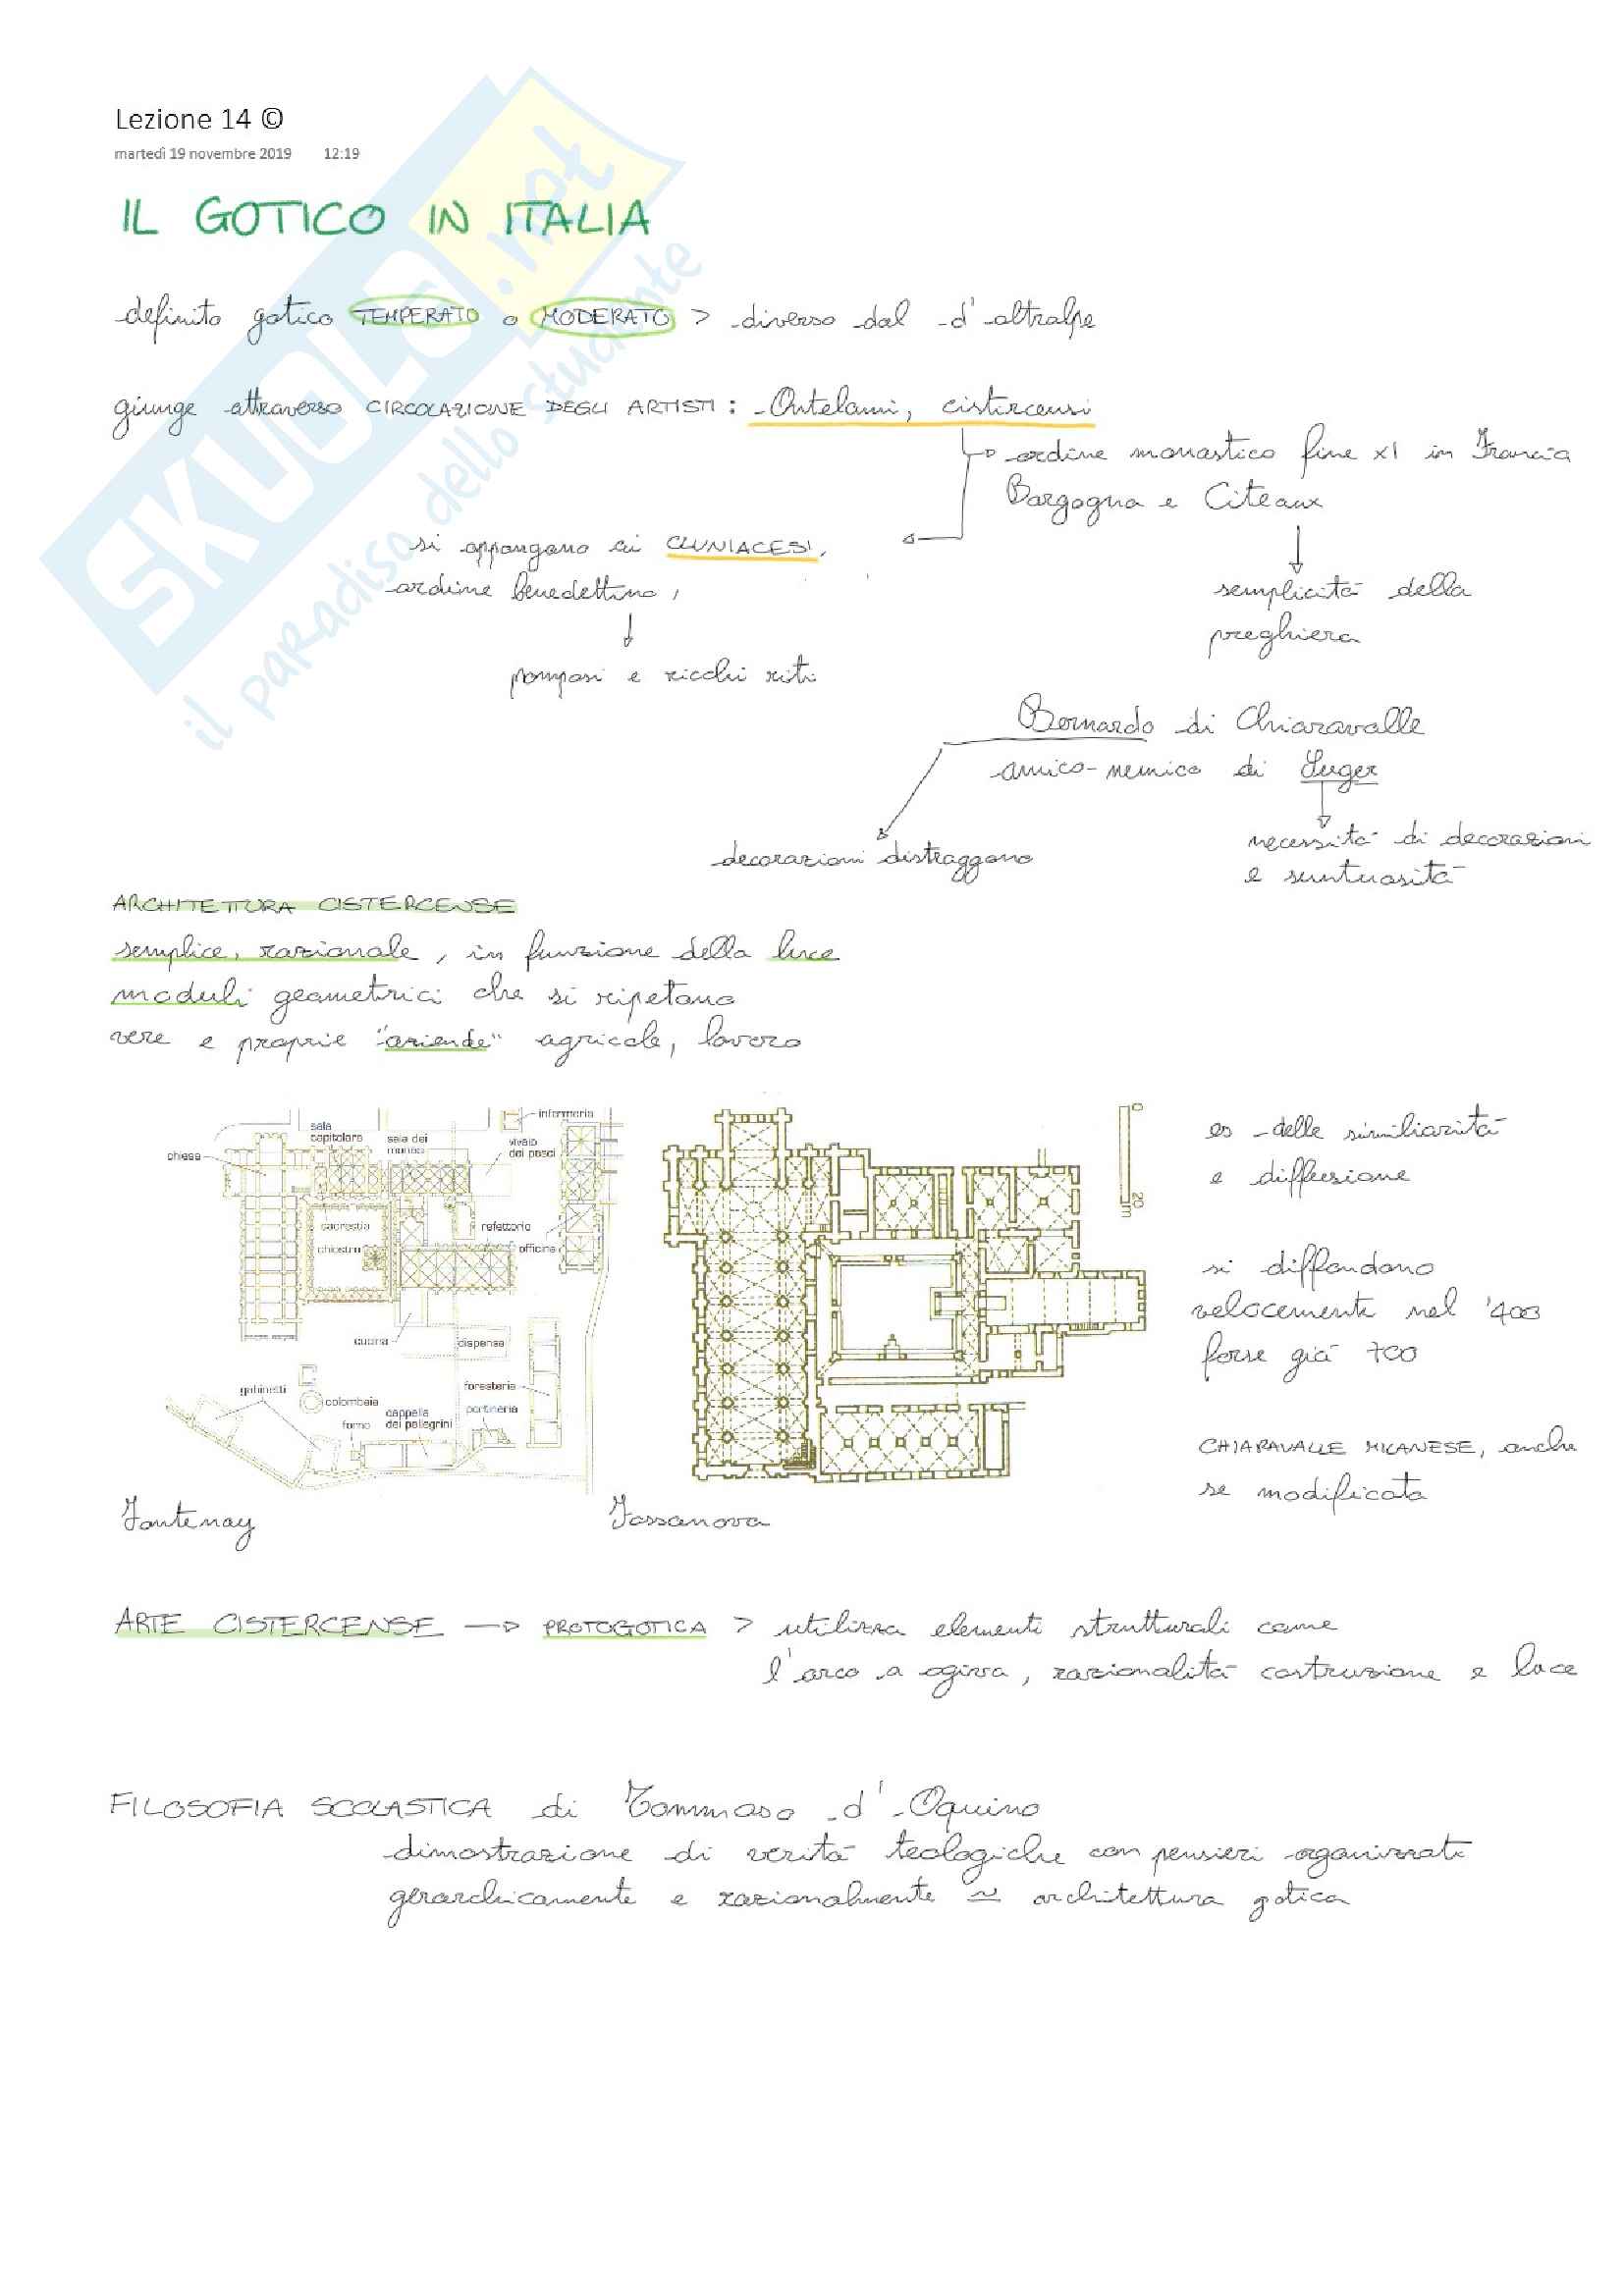 Lezione 14 ©
martedì 19 novembre 2019 12:19
IL GOTICO IN ITALIA
definito gotico TEMPERATO o MODERATO > diverso dal d'oltralpe
giunge attraverso CIRCOLAZIONE DEGLI ARTISTI: Antelami, cistercensi
ordine monastico fine XI in Francia
Borgogna e Citeaux
si oppongono ai CLUNIACESI,
ordine benedettino,
semplicità della
preghiera
pomposi e ricchi riti
Bernardo di Chiaravalle
amico-nemico di Suger
necessità di decorazioni
e suntuosità
decorazioni distraggono
ARCHITETTURA CISTERCENSE
semplice, razionale, in funzione della luce
moduli geometrici che si ripetono
vere e proprie "aziende" agricole, lavoro
infermeria
sala
capitolare
sala dei
monaci
vivaio
dei pesci
chiesa
sacrestia
refettorio
chiostro
officine
cucina
dispensa
foresteria
gabinetti
colombaia
cappella
dei pellegrini
portineria
forno
0
20
m
es delle similiarità
e diffusione
si diffondono
velocemente nel '400
forse già 700
CHIARAVALLE MILANESE, anche
se modificata
Fontenay
Fossanova
ARTE CISTERCENSE → PROTOGOTICA > utilizza elementi strutturali come
l'arco a ogiva, razionalità costruzione e luce
FILOSOFIA SCOLASTICA di Tommaso d'Aquino
dimostrazione di verità teologiche con pensieri organizzati
gerarchicamente e razionalmente ≃ architettura gotica
SKUOLA.net
il paradiso dello studente